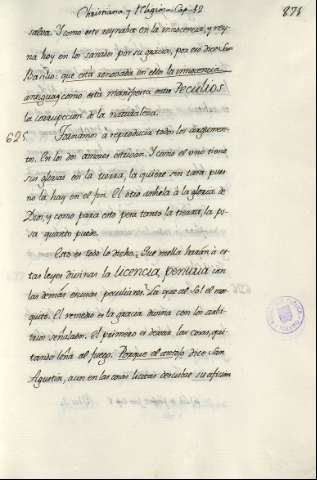 Christiana y Pagana Cap. 12
875
salva. Y como este reynaba en la innocencia, y rey-
na hoy en los sanados por su gracia, por eso dice San
Basilio: que está renovada en ellos la innocencia
antigua; como está manifiesta en los
la corrupcion de la naturaleza.
625 Tornamos a reproducir todo los argumen-
tos. En los dos amores estrivan. Y como el uno tiene
sus glorias en la tierra, la quiere con tanta
no la hay en el fin. El otro anhela à la gloria de
Dios, y como para esto pesa tanto la tierra, la pi-
sa quanto puede.
Esto es todo lo dicho. Que mella harán à es-
tas leyes divinas la licencia con
las demás peculiares? La que al Sol el mos-
quito. El remedio es la gracia divina con los
señalados. El primero es dexar las cosas, qui-
tando leña al fuego. Porque el dice San
Agustin, aun en las cosas licitas descubre su aficion